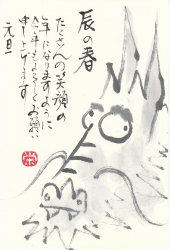 辰の春
たくさんの笑顔の
年になりますように
今年もよろしくお願い
申し上げます
元旦
栄